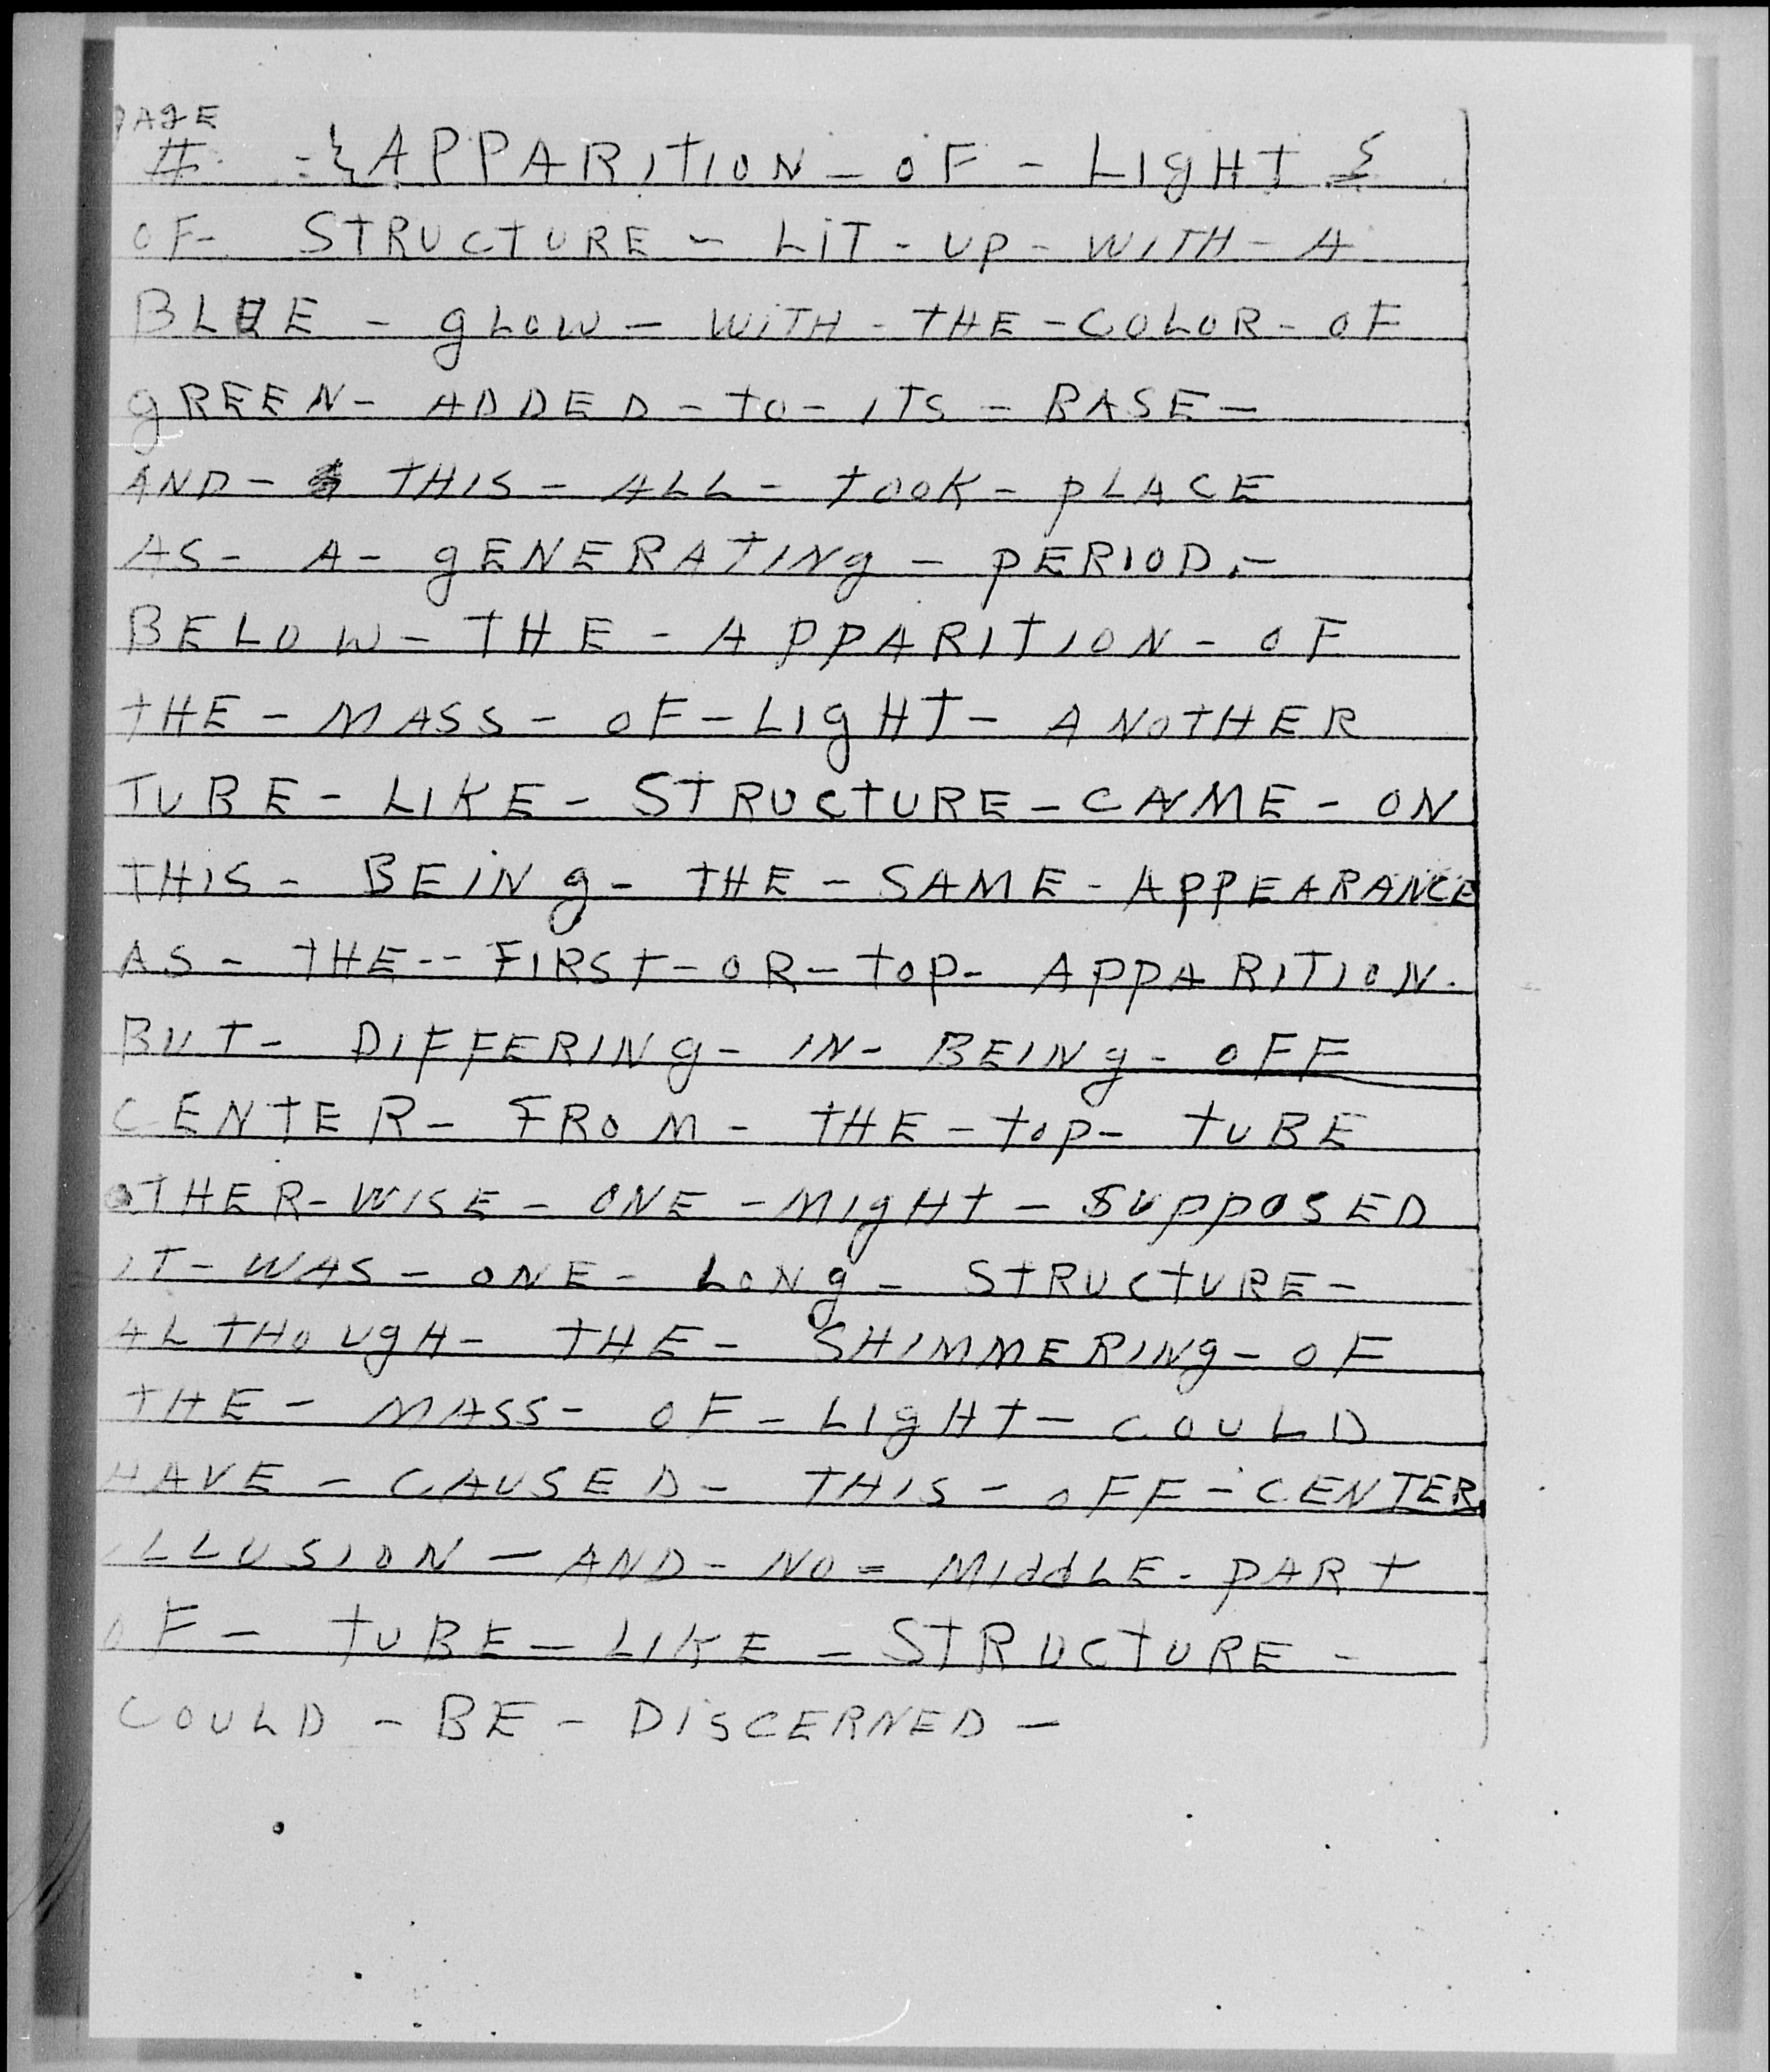 PAGE
# - {APPARITION - OF - LIGHT}
OF - STRUCTURE - LIT - UP - WITH - A
BLUE - gLOW - WITH - THE - COLOR - OF
gREEN - ADDED - TO - ITS - BASE -
AND - THIS - ALL - TOOK - PLACE
AS - A - gENERATINg - PERIOD. -
BELOW - THE - APPARITION - OF
THE - MASS - OF - LIgHT - ANOTHER
TUBE - LIKE - STRUCTURE - CAME - ON
THIS - BEINg - THE - SAME - APPEARANCE
AS - THE - - FIRST - OR - TOP - APPARITION.
BUT - DIFFERINg - IN - BEINg - OFF
CENTER - FROM - THE - TOP - TUBE
OTHER - WISE - ONE - MIgHT - SUPPOSED
IT - WAS - ONE - LONg - STRUCTURE -
ALTHOUgH - THE - SHIMMERINg - OF
THE - MASS - OF - LIgHT - COULD
HAVE - CAUSED - THIS - OFF - CENTER
ILLUSION - AND - NO = MIddLE - PART
OF - TUBE - LIKE - STRUCTURE -
COULD - BE - DISCERNED -